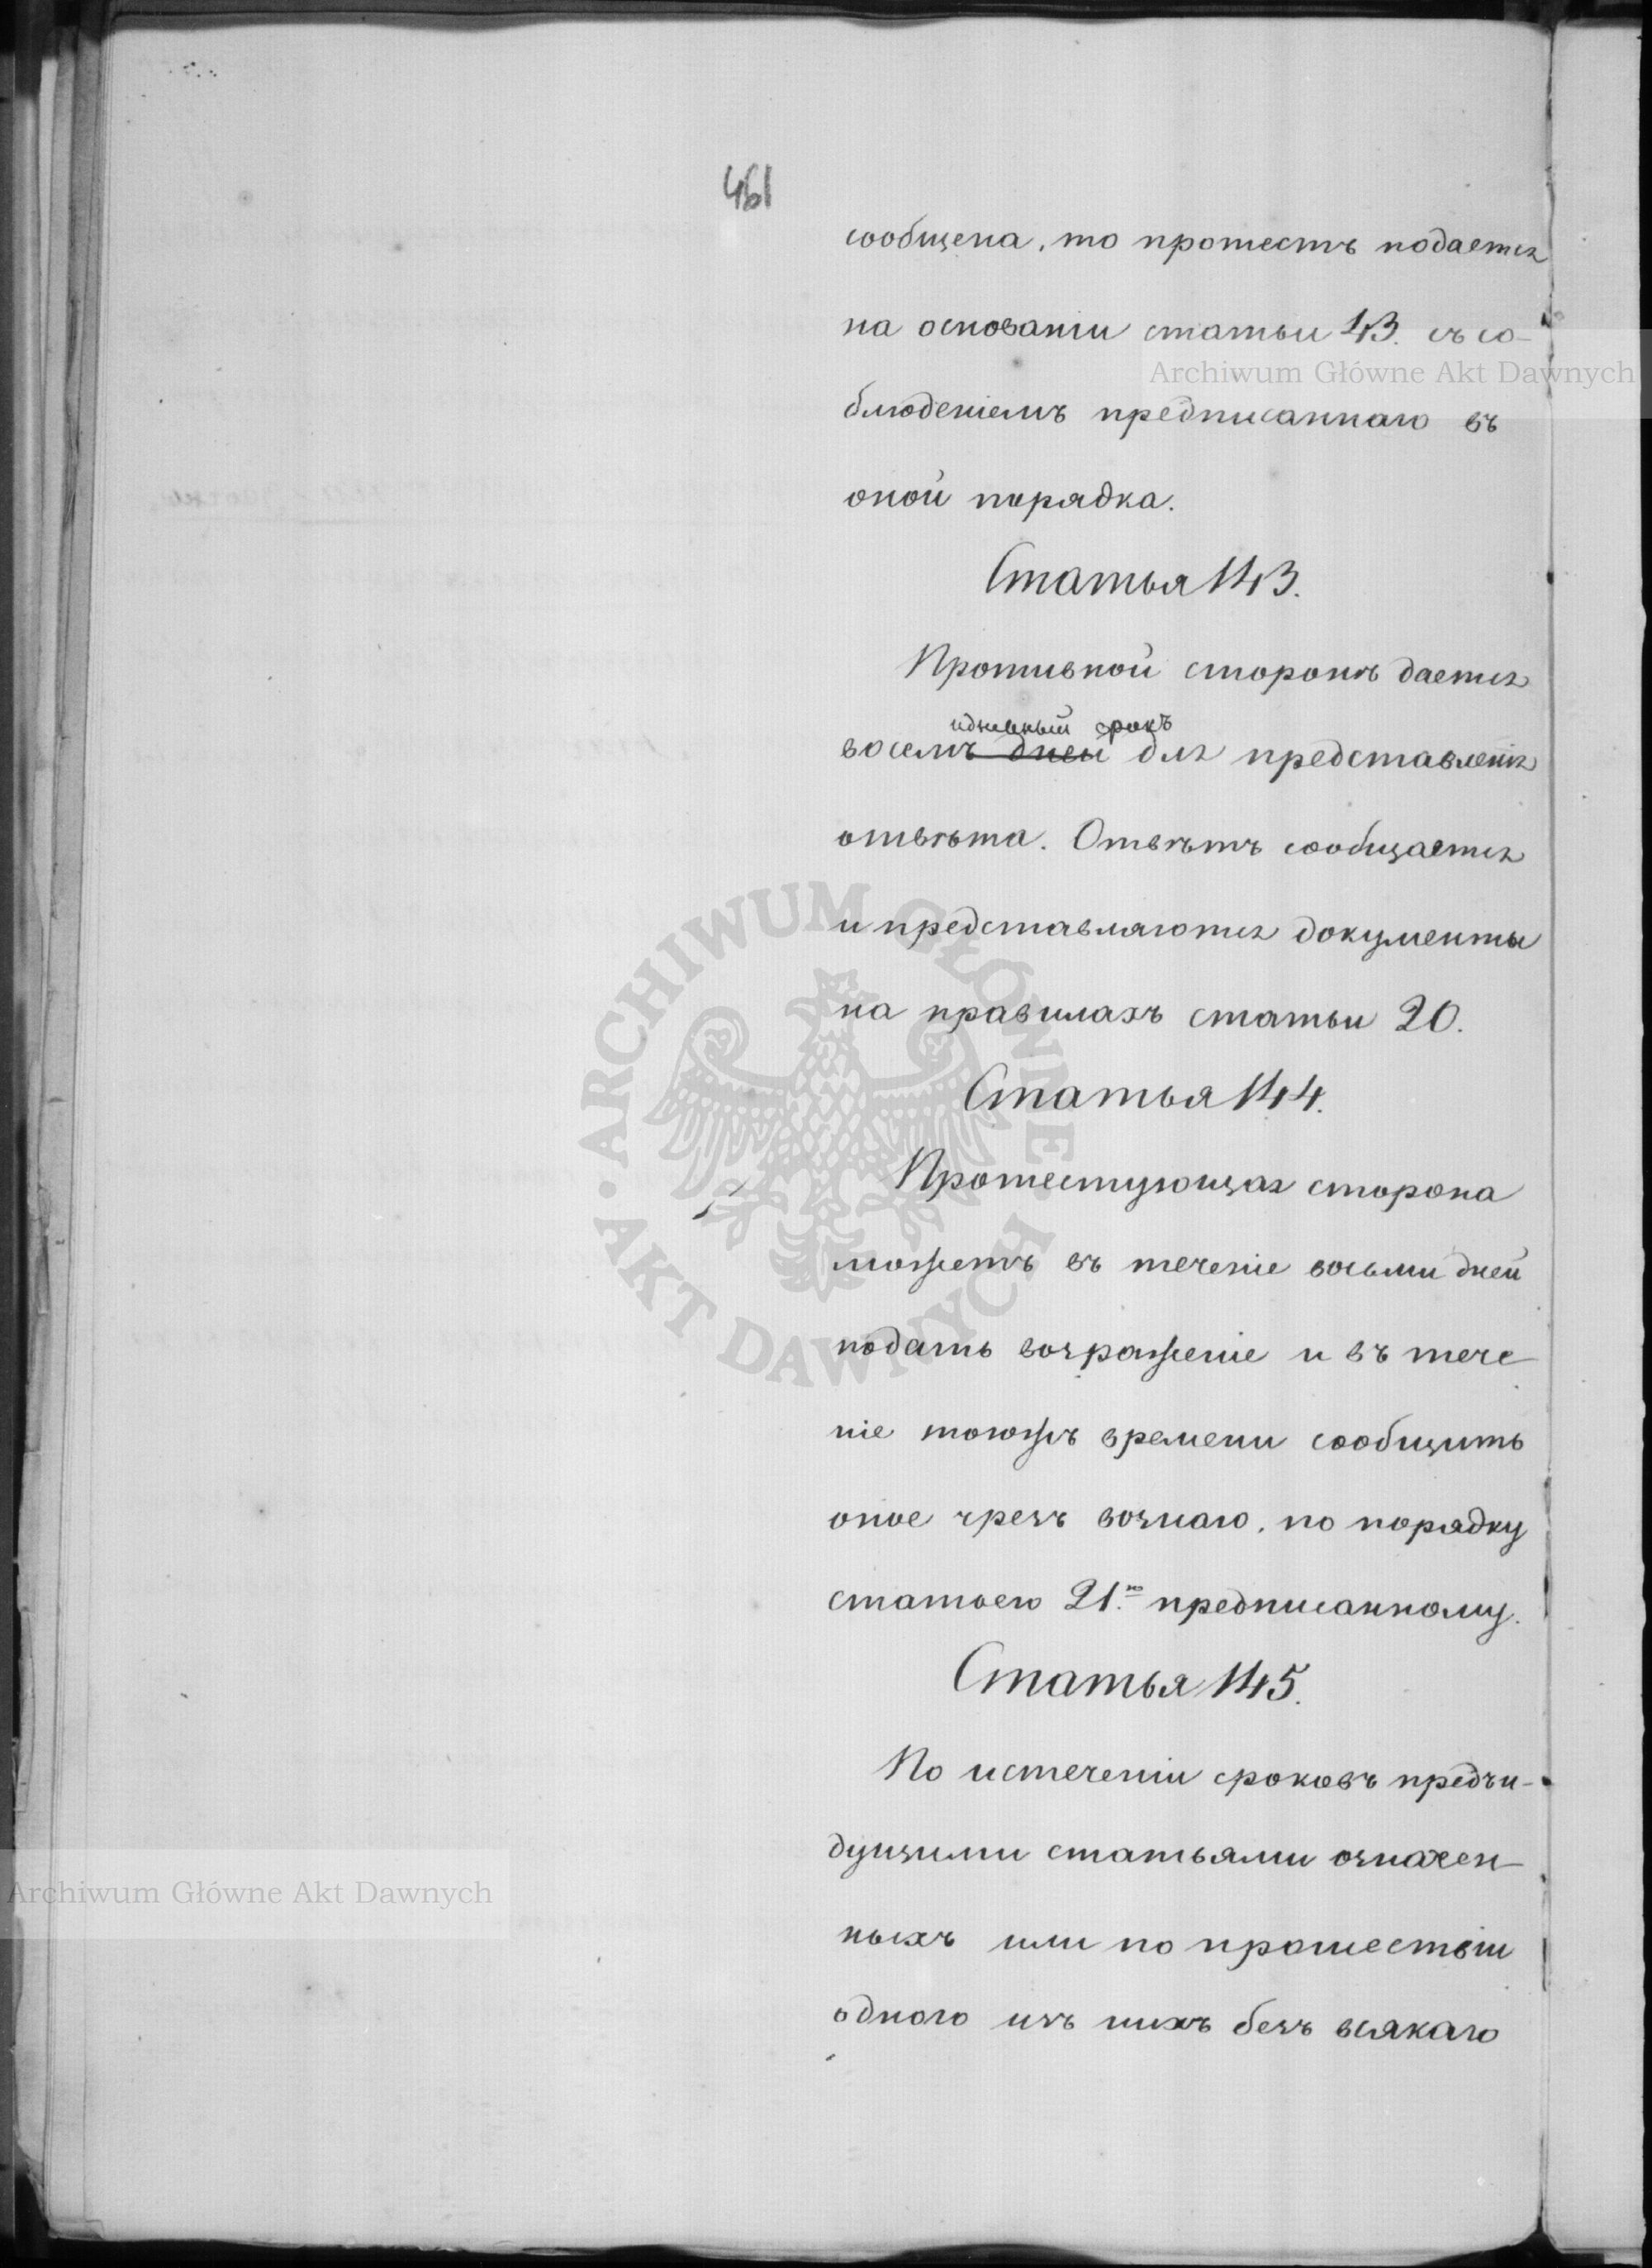 461
сообщена, то протестъ подается
на основаніи статьи 43. съ со-
Archiwum Główne Akt Dawnych
блюденіемъ предписаннаго въ
оной порядка.
Статья 143.
Противной сторонѣ дается
идневный срокъ
восемь дней для представленія
отвѣта. Отвѣтъ сообщается
и представляются документы
на правилахъ статьи 20.
Статья 144.
Протестующая сторона
можетъ въ теченіе восьми дней
подать возраженіе и въ тече-
ніе тогожъ времени сообщить
оное чрезъ вознаго, по порядку
статьею 21.ю предписанному.
Статья 145.
По истеченіи сроковъ предъи-
дущими статьями означен-
ныхъ или по прошествіи
одного изъ нихъ безъ всякаго
ARCHIWUM GŁÓWNE AKT DAWNYCH
Archiwum Główne Akt Dawnych